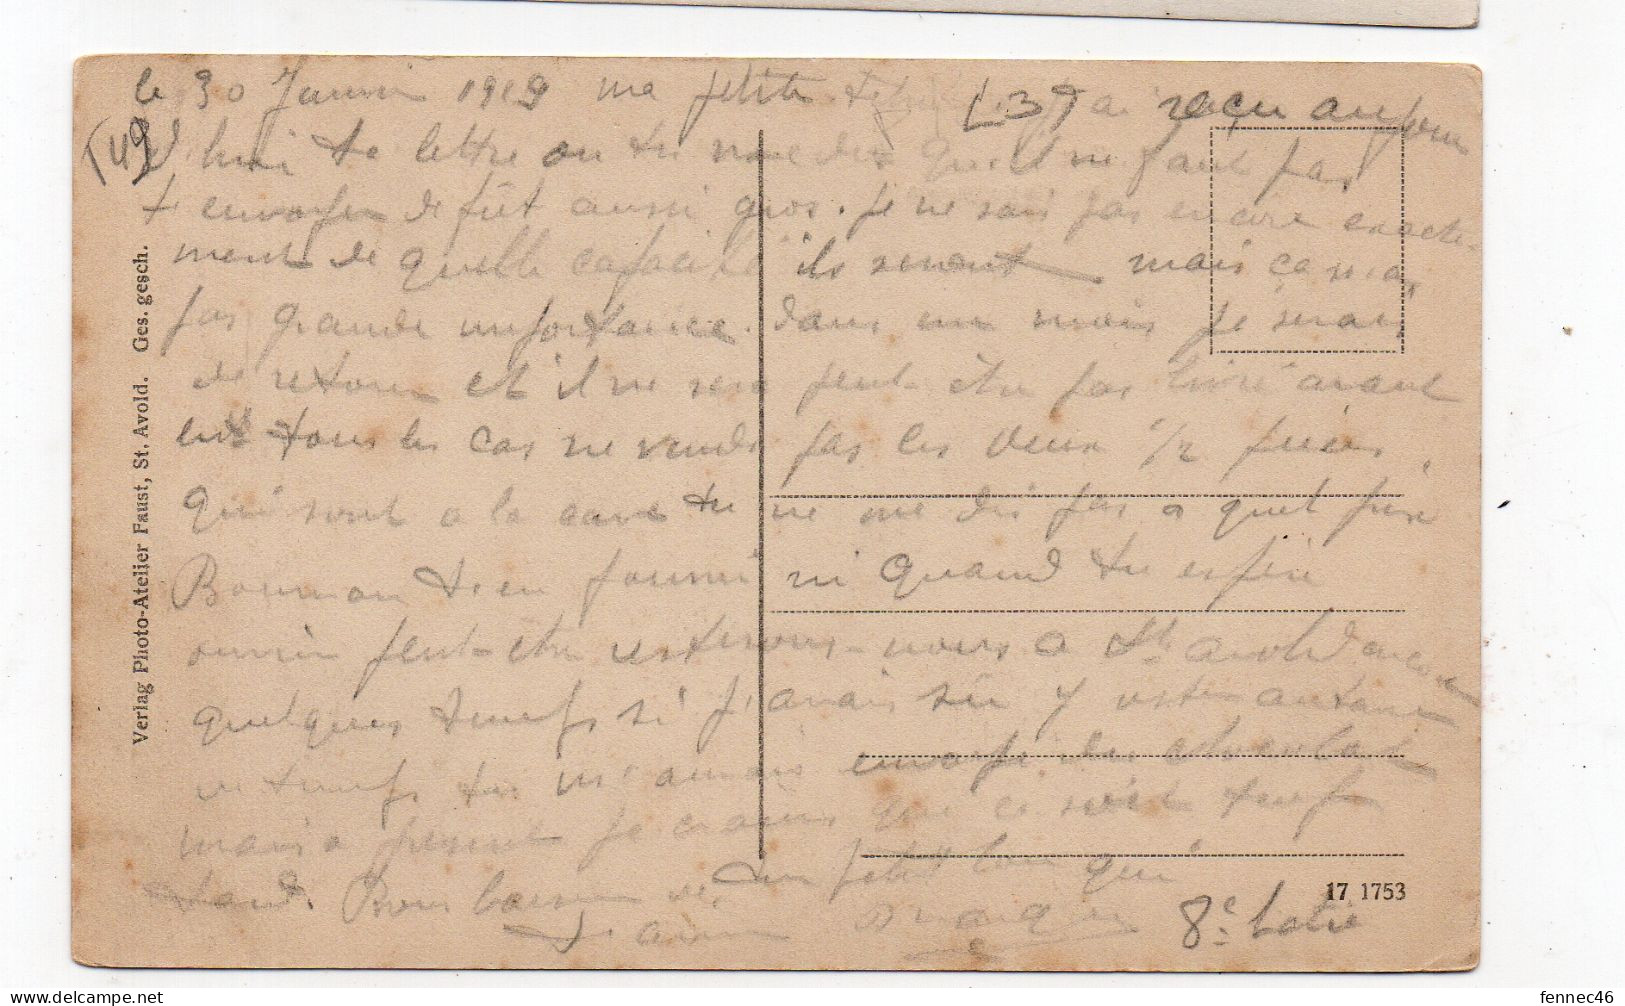 le 30 Janvier 1919 ma petite J'ai reçu aujour
d'hui ta lettre ou tu me dis qu'il ne faut pas
t'envoyer de fût aussi gros. Je ne sais pas encore exacte-
ment de quelle capacité ils seront mais ça n'a
pas grande importance. dans un mois je serai
de retour et il ne sera peut être pas livré avant
tous les cas ne vends pas les deux 1/2 pièces
qui sont a la cave tu ne me dis pas a quel prix
t'en fourni ni quand tu
peut-être resterons nous a St avold encore
quelques temps si j'avais su y rester autant
de temps tu m'aurais envoyé du chocolat
mais a present je crains que ce soit trop
tard. Bons baisers de ton petit qui
8e Batie
L37
T49
Verlag Photo-Atelier Faust, St. Avold. Ges. gesch.
17 1753
delcampe.net
fennec46